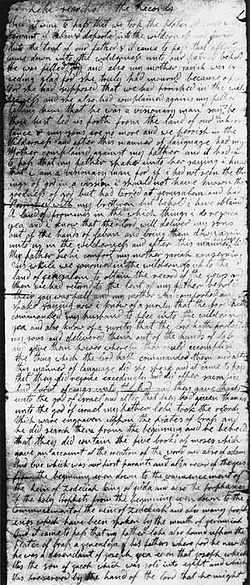 the Records
came to pass that we took the plates
servant of Laban & departed into the wilderness &
unto the tent of our father & it came to pass that after
came down into the wilderness unto our father behold he
he was and also my mother was
glad for she truly had mourned because of
for she had supposed that we had perished in the wild
erness and she also had complained against my father
that he was a visionary man saying
thou hast led us forth from the land of our inherit
ance & my sons are no more and we perish in the
wilderness and after this manner of language had my
mother complained against my father and it came
to pass that my father spake unto her saying I know
that I am a visionary man for if I had not seen the thi
ngs of god in a vision I should not have known the
goodness of god but had tarried at Jerusalem and had
perished with my brethren but behold I have obtained
a land of promise in the which things I do rejoice
yea and I know that the lord will deliver my sons
out of the hands of Laban and bring them down again
unto us in the wilderness and after this manner of
my father Lehi comfort my mother
us while we journeyed in the wilderness up to the
land of Jerusalem to obtain the record of the
when we had returned to the tent of my father
their joy was full and my mother was comforted and
she spake saying now I know of a surety that the lord hath
commanded my husband to flee into the wilderness
yea and I also know of a surety that the lord hath protected
my sons and delivered them out of the hands of Laban
power whereby they could accomplish
the thing which the lord hath commanded them and after
this manner of language did she speak and it came to pass
that they did rejoice exceedingly and did offer sacrifice
they gave thanks
unto the god of Israel and after that they had given thanks
unto the god of Israel my father Lehi took the records
which were engraven upon the plates of brass and
he did search them from the beginning and he beheld
that they did contain the five books of moses which
gave an account of the creation of the world and also of adam
and eve which was our first parents and also a record of the jews
from the beginning even down to the commencement of
the reign of Zedekiah king of Judah and also the prophecies
of the holy prophets from the beginning even down to the
commencement of the reign of Zedekiah and also many proph
ecies which have been spoken by the mouth of jeremiah
and it came to pass that my father Lehi also found upon the
plates of brass a genealogy of his fathers wherefore he knew
he was a descendant of Joseph yea even that Joseph which
was the son of Jacob which was sold into egypt and
was preserved by the hand of the lord that he might